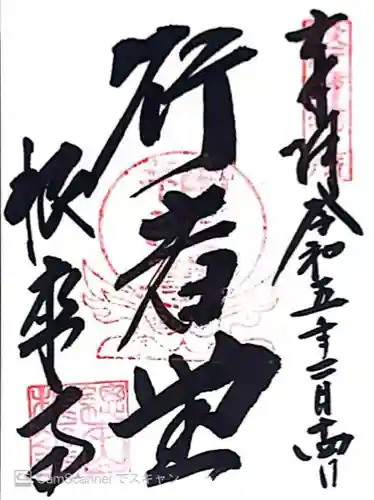 奉拝 令和五年一月十四日
行者堂
根来寺
CamScanner でスキャン